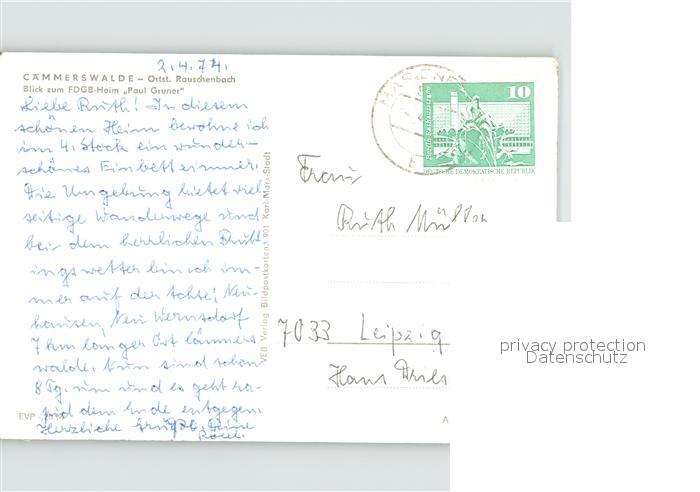 2.4.74.
CÄMMERSWALDE – Ortst. Rauschenbach
Blick zum FDGB-Heim „Paul Gruner"
Liebe Ruth! In diesem
schönen Heim bewohne ich
im 4. Stock ein wunder-
schönes Einbettzimmer.
Die Umgebung bietet viel
seitige Wanderwege und
bei dem herrlichen Früh
ingswetter bin ich im-
mer auf der Achse; Neu-
hausen, Neu Wernsdorf
7 km langer Ort Cämmers
walde. Nun sind schon
8 Tg. um und es geht ra-
pid dem Ende entgegen.
Herzliche Grüße Deine
EVP
VEB Verlag Bildpostkarten, 901 Karl-Marx-Stadt
10
DEUTSCHE DEMOKRATISCHE REPUBLIK
Frau
Ruth Müller
7033 Leipzig
Hans Dries
A
privacy protection
Datenschutz